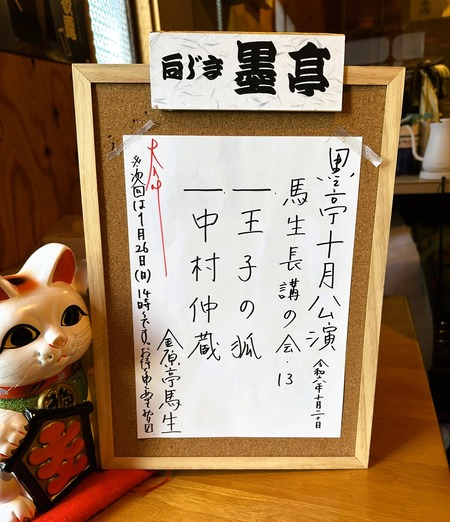 向じま 墨亭
墨亭十月公演 令和六年十月二十日
馬生長講の会・13
一 王子の狐
一 中村仲蔵
金原亭馬生
※次回は1月26日(日)14時です。お待ち申しあげ〼